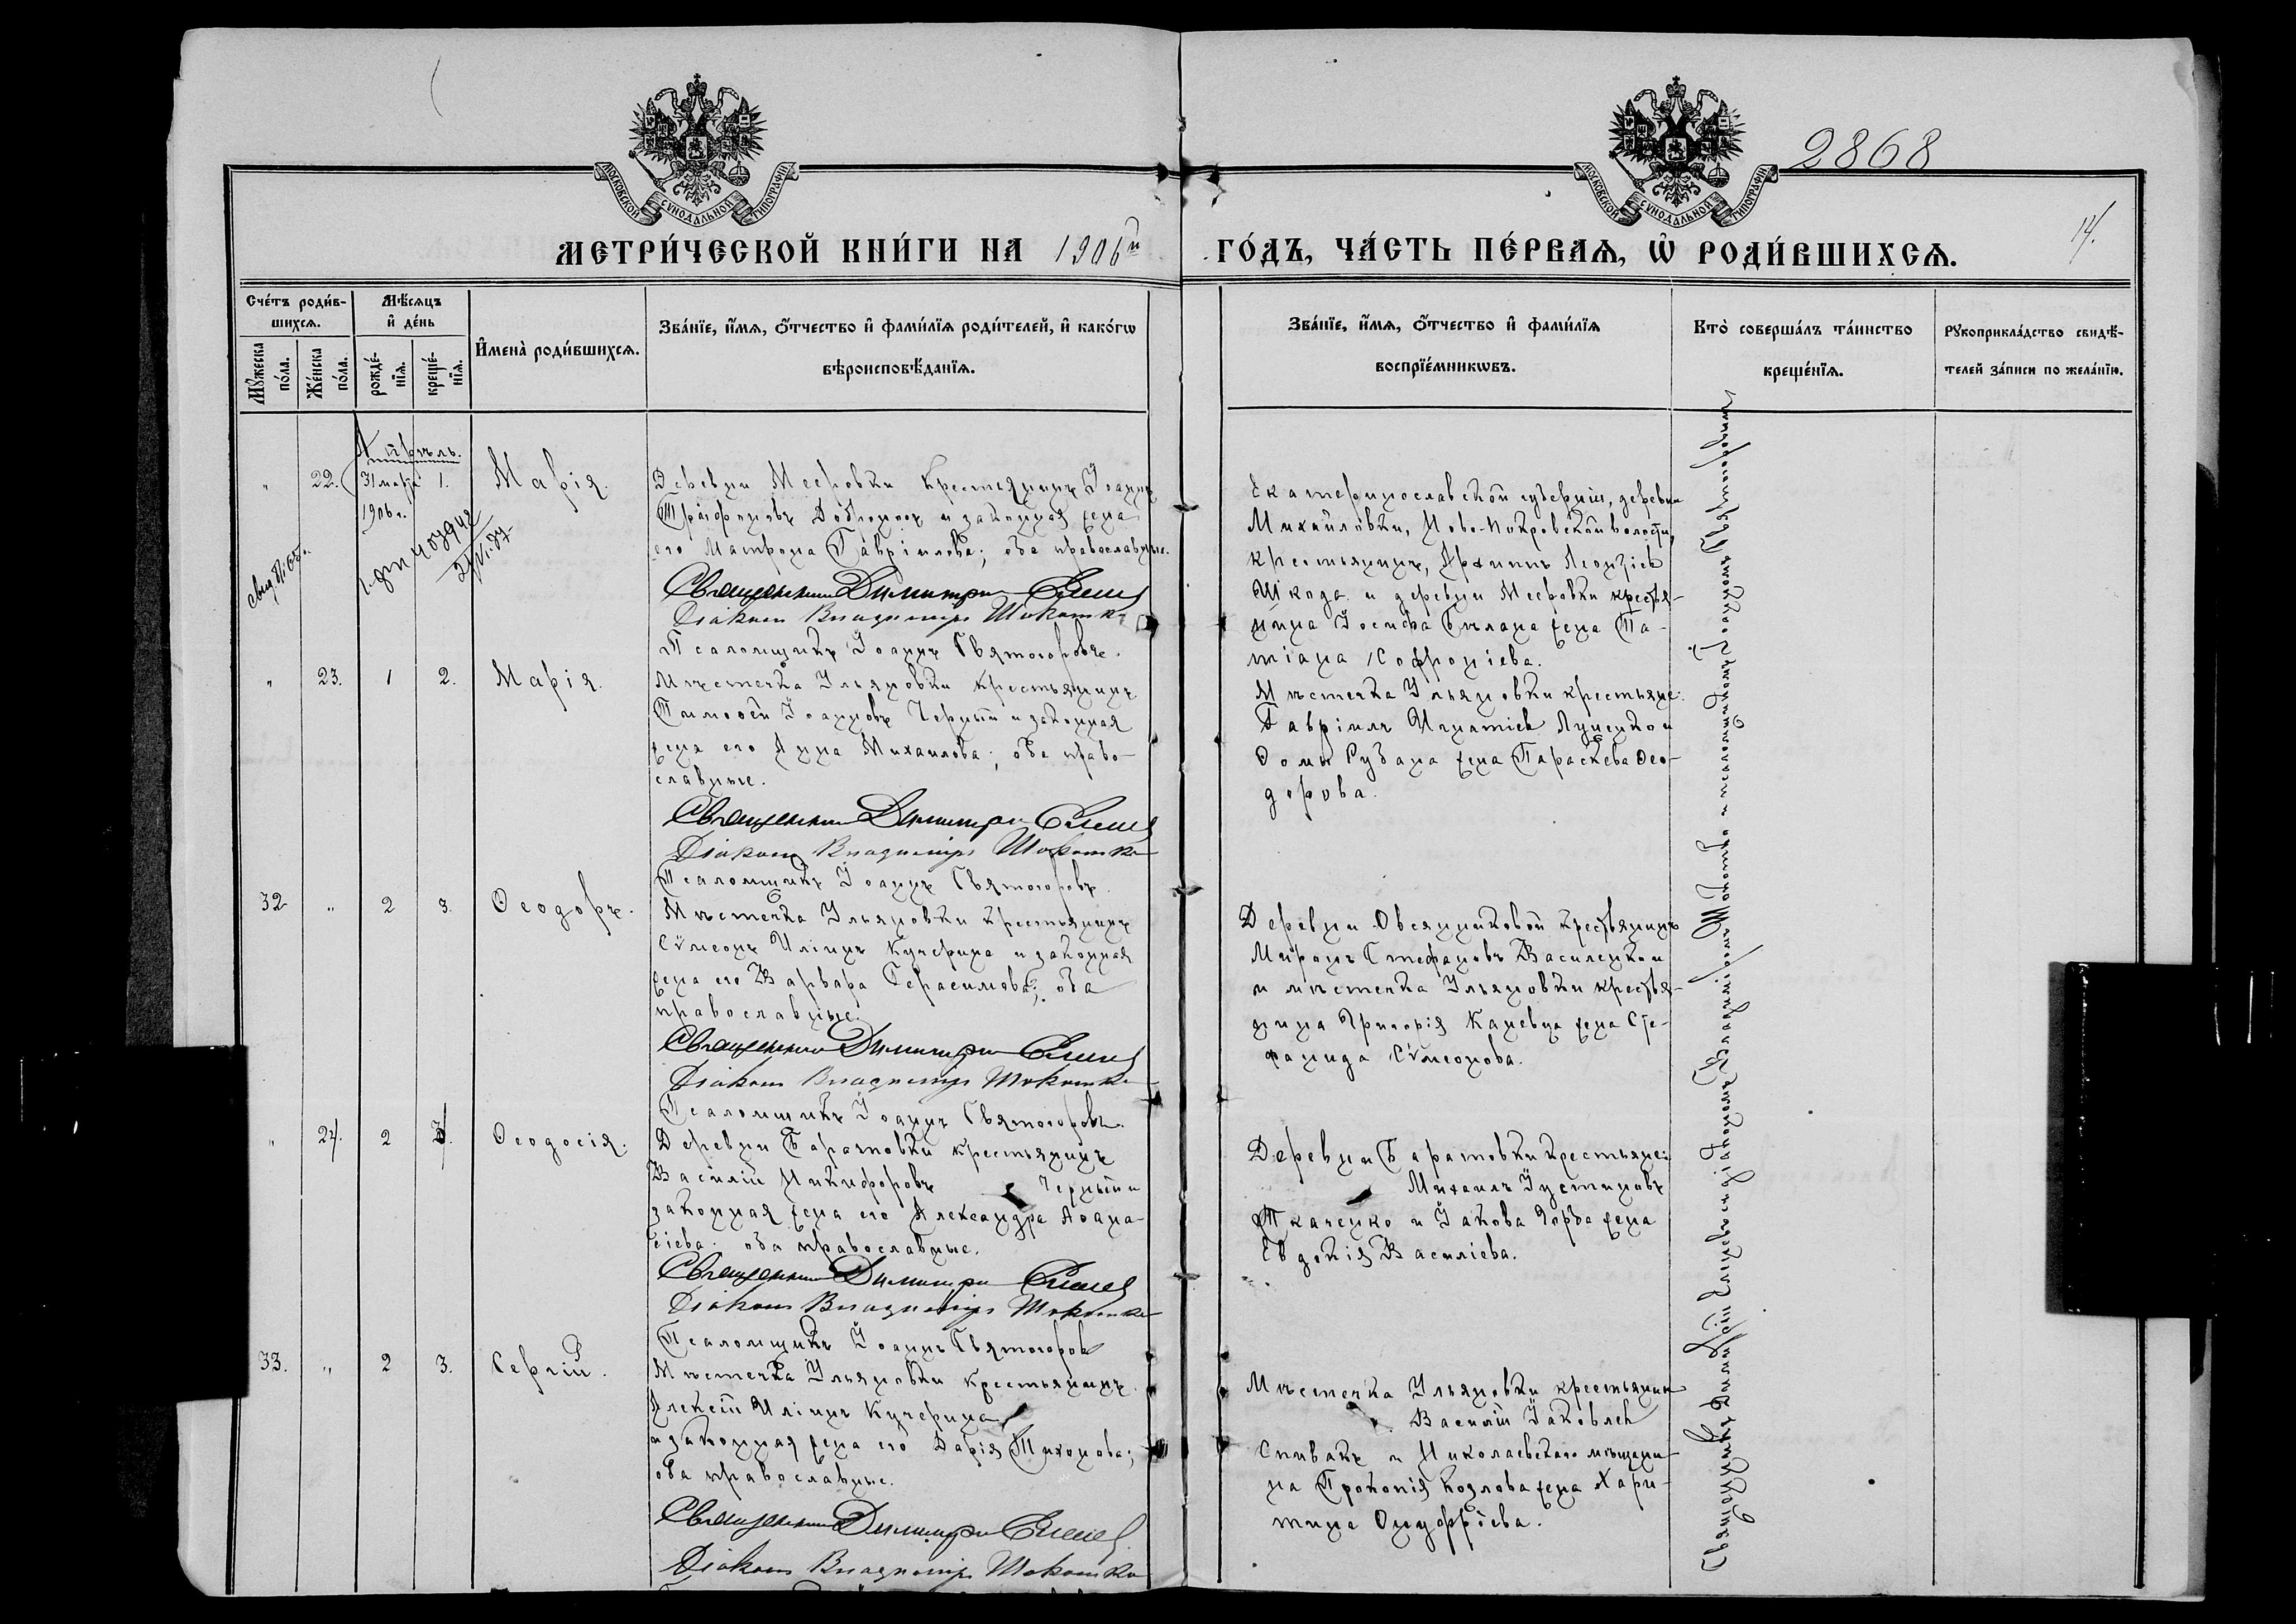 2868
14.
МОСКОВСКОЙ СѴНОДАЛЬНОЙ ТИПОГРАФІИ
МОСКОВСКОЙ СѴНОДАЛЬНОЙ ТИПОГРАФІИ
МЕТРИ́ЧЕСКОЙ КНИ́ГИ НА 1906й ГО́ДЪ, ЧА́СТЬ ПЕ́РВАѦ, Ѡ҆ РОДИ́ВШИХСѦ.
Сче́тъ роди́в-
шихсѧ.
Мѹ́жеска по́ла.
Же́нска по́ла.
Мѣ́сѧцъ
и҆ де́нь
рожде́-
нїѧ.
креще́-
нїѧ.
И҆мена̀ роди́вшихсѧ.
Зва́нїе, и҆́мѧ, ѻ҆́тчество и҆ фами́лїѧ роди́телей, и҆ како́гѡ
вѣроисповѣ́данїѧ.
Зва́нїе, и҆́мѧ, ѻ҆́тчество и҆ фами́лїѧ
воспрїе́мникѡвъ.
Кто̀ соверша́лъ та́инство
креще́нїѧ.
Рꙋкоприкла́дство свидѣ́-
телей за́писи по жела́нїю.
Апрѣль.
" 22. 31 марта 1. Марія.
1906 г.
Деревни Мееровки крестьянинъ Іоаннъ
Трофимовъ и законная жена
его Матрона Гавріилова; оба православные.
Священникъ Димитрій
Діаконъ Владиміръ Шокотко
Псаломщикъ Іоаннъ Святогоровъ.
Екатеринославской губерніи, деревни
Михайловки, Ново-Покровской волости,
крестьянинъ, Архипъ Леонтіев
Шкода и деревни Мееровки крестья-
нина Іосифа Билана жена Та-
тіана Софроніева.
" 23. 1 2. Марія.
Мѣстечка Ульяновки крестьянинъ
Тимофей Іоанновъ Черный и законная
жена его Анна Михаилова; оба право-
славные.
Священникъ Димитрій
Діаконъ Владиміръ Шокотко
Псаломщикъ Іоаннъ Святогоровъ.
Мѣстечка Ульяновки крестьяне:
Гавріилъ Игнатіев Луценко и
Ѳомы Рубана жена Параскева Ѳео-
дорова.
32 " 2 3. Ѳеодоръ.
Мѣстечка Ульяновки крестьянинъ
Сѵмеонъ Иліинъ Кучерина и законная
жена его Варвара Герасимова; оба
православные.
Священникъ Димитрій
Діаконъ Владиміръ Шокотко
Псаломщикъ Іоаннъ Святогоровъ.
Деревни Овсянниковой крестьянинъ
Миронъ Стефановъ Василенко и
и мѣстечка Ульяновки крестья-
нина Григорія Каневца жена Сте-
фанида Сѵмеонова.
" 24. 2 3. Ѳеодосія.
Деревни Баратовки крестьянинъ
Василій Никифоровъ Черный и
законная жена его Александра Аѳана-
сіева. оба православные.
Священникъ Димитрій
Діаконъ Владиміръ Шокотко
Псаломщикъ Іоаннъ Святогоров
Деревни Баратовки крестьяне:
Михаилъ Іустиновъ
Ткаченко и Іакова жена
Евдокія Василіева.
33. " 2 3. Сергій.
Мѣстечка Ульяновки крестьянинъ
Алексій Иліинъ Кучерина
и законная жена его Дарія Тихонова;
оба православные.
Священникъ Димитрій
Діаконъ Владиміръ Шокотко
Мѣстечка Ульяновки крестьянин
Василій Іаковлев
Спивакъ и Николаевскаго мѣщани-
на Прокопія Козлова жена Хари-
тина Онуфріева.
Священникъ Димитрій съ діакономъ Владиміромъ Шокотко и псаломщикомъ Іоанномъ Святогоровымъ